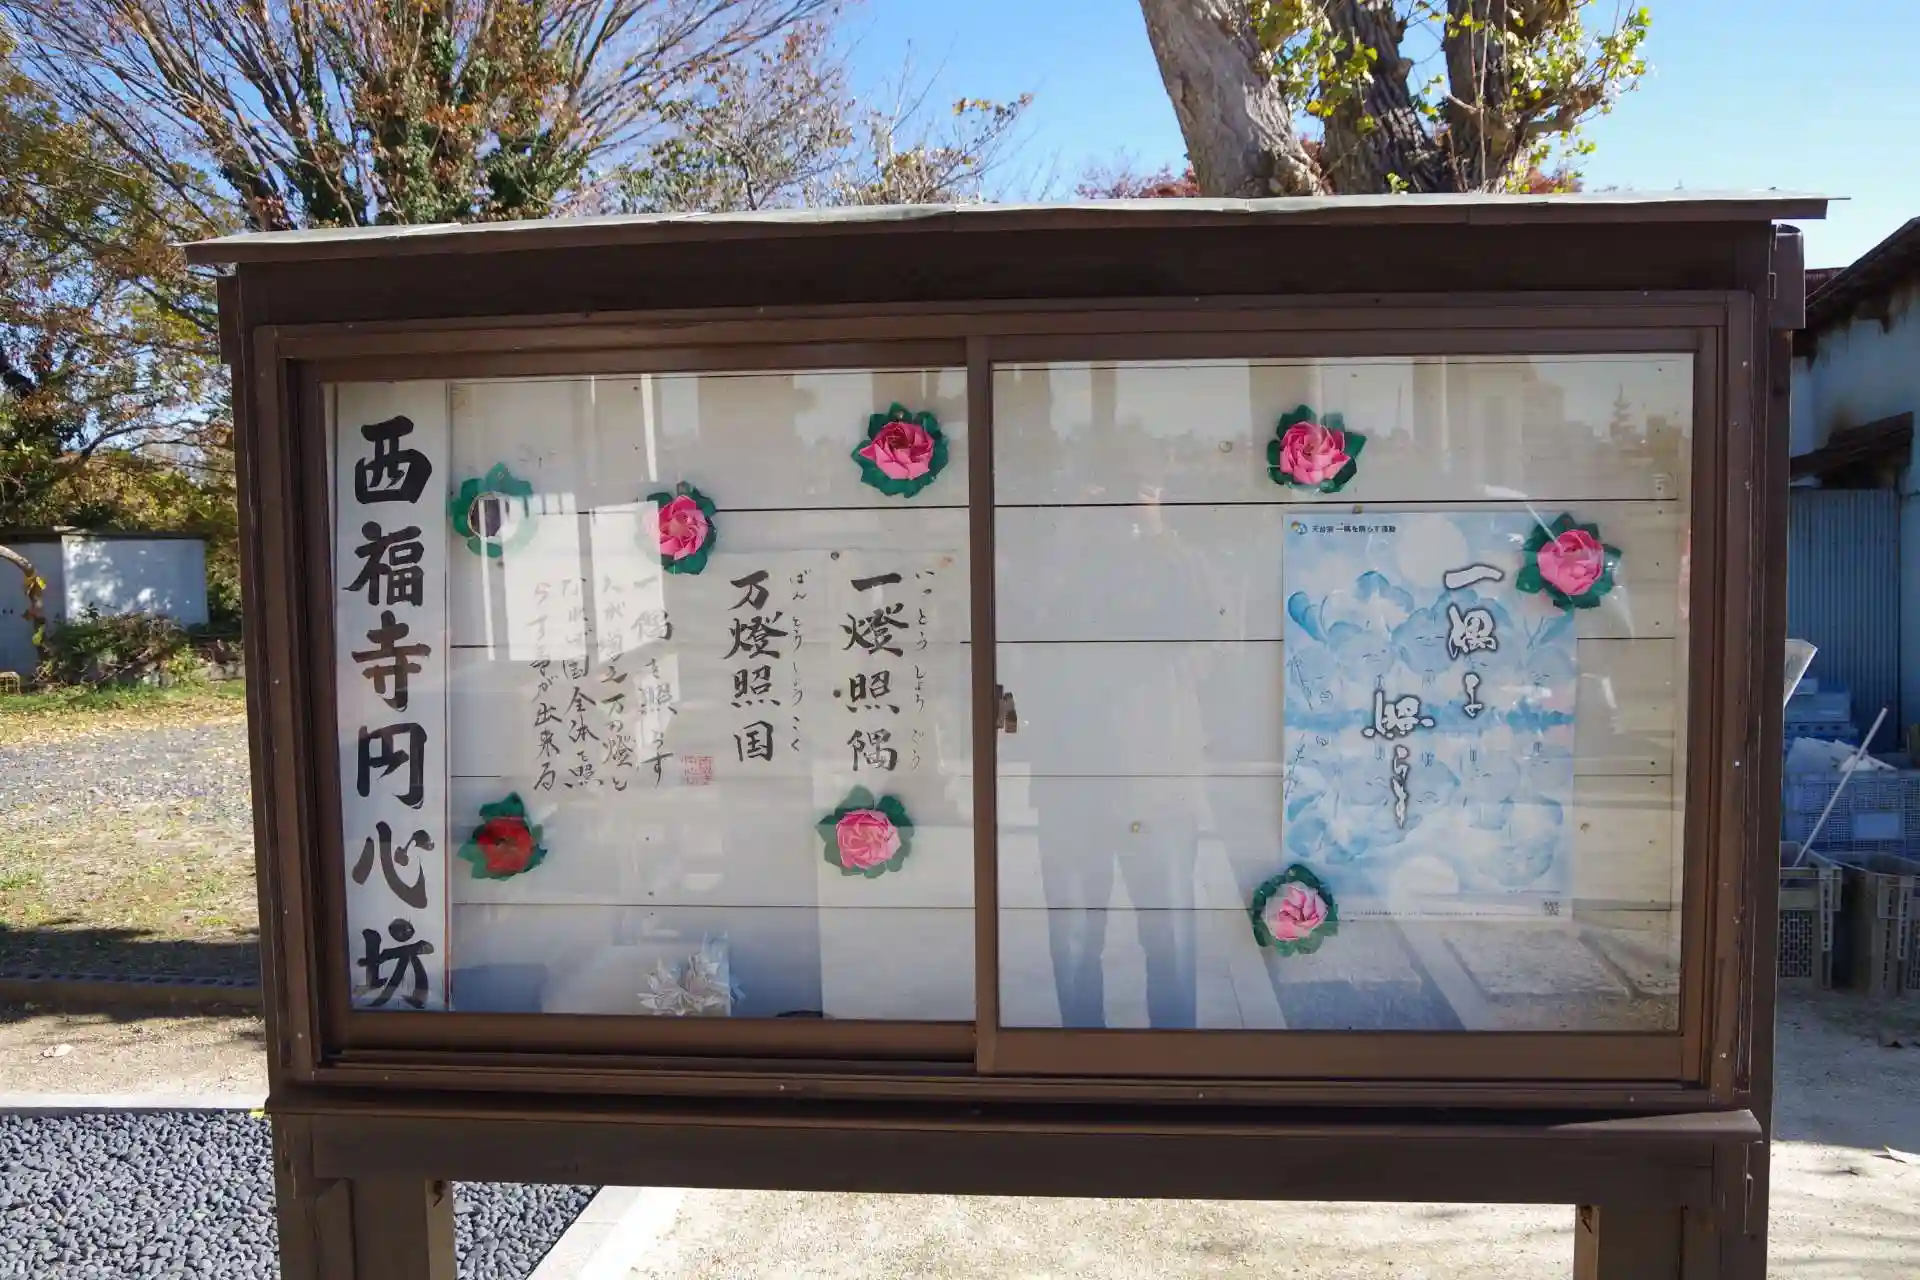 西福寺円心坊
天台宗 一隅を照らす運動
一隅を
照らす
いっとうしょうぐう
一燈照隅
ばんとうしょうこく
万燈照国
一隅を照らす
人が増え万の燈と
なれば国全体を照
らす事が出来る